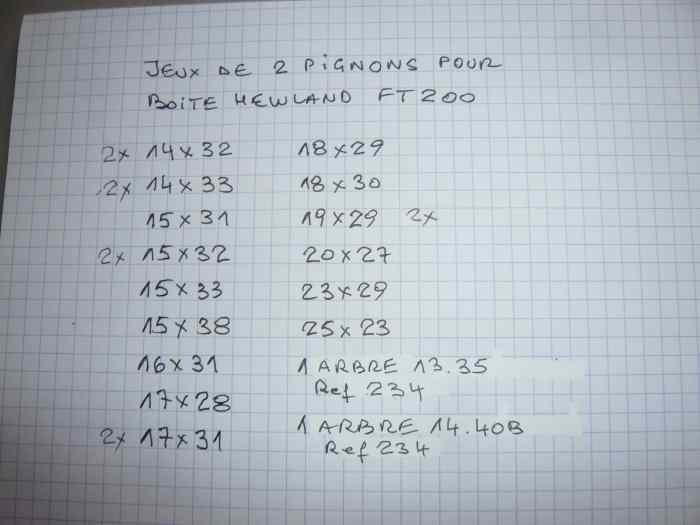 JEUX DE 2 PIGNONS POUR
BOITE HEWLAND FT200
2x 14x32
2x 14x33
15x31
2x 15x32
15x33
15x38
16x31
17x28
2x 17x31
18x29
18x30
19x29 2x
20x27
23x29
25x23
1 ARBRE 13.35
Ref 234
1 ARBRE 14.40B
Ref 234